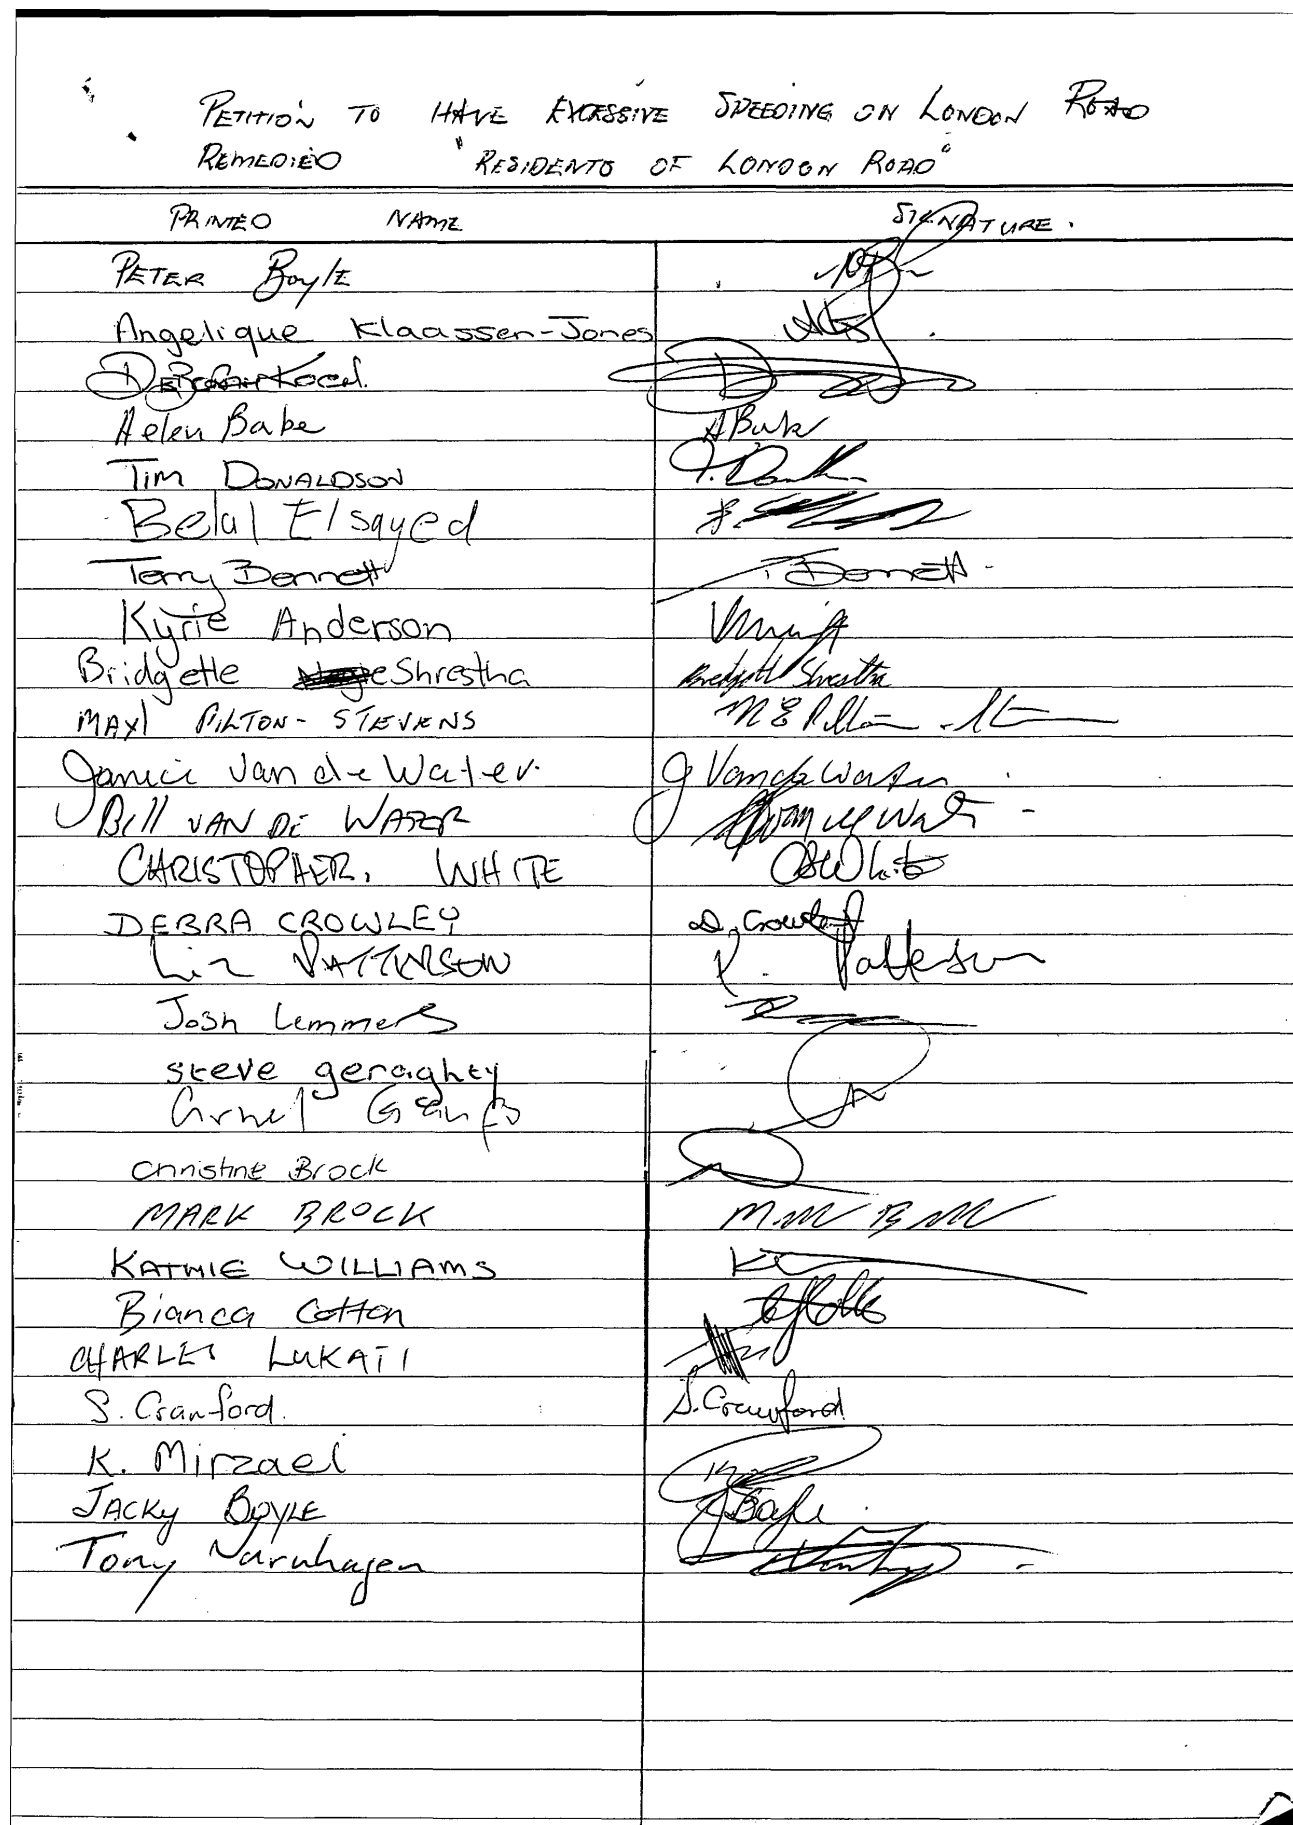 PETITION TO HAVE EXCESSIVE SPEEDING ON LONDON ROAD
REMEDIED "RESIDENTS OF LONDON ROAD"
PRINTED NAME SIGNATURE.
PETER Boyle
Angelique Klaassen-Jones
Helen Babe
TIM DONALDSON T. 
Belal Elsayed
Terry Bennett T Bennett
Kyrie Anderson
Bridgette Shrestha Bridgette Shrestha
MAXI PILTON-STEVENS M E Pilton-
Janice Van de Water. J Van de Water
Bill VAN DE WATER
CHRISTOPHER. WHITE White
DEBRA CROWLEY D. Crowley
Liz PATTERSON Patterson
Josh Lemmers
steve geraghty
Christine Brock
MARK BROCK
KATHIE WILLIAMS
Bianca Cotton
CHARLES LUKATI
S. Crawford. S. Crawford
K. Mirzaei
JACKY BOYLE J Boyle
Tony Varnhagen